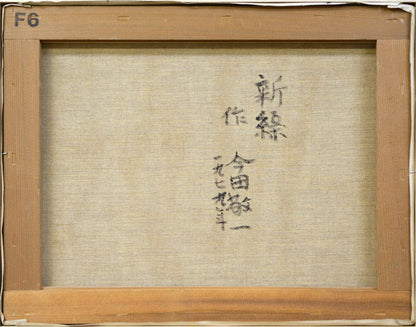 F6
新緑
作 今田敬一
一九七九年